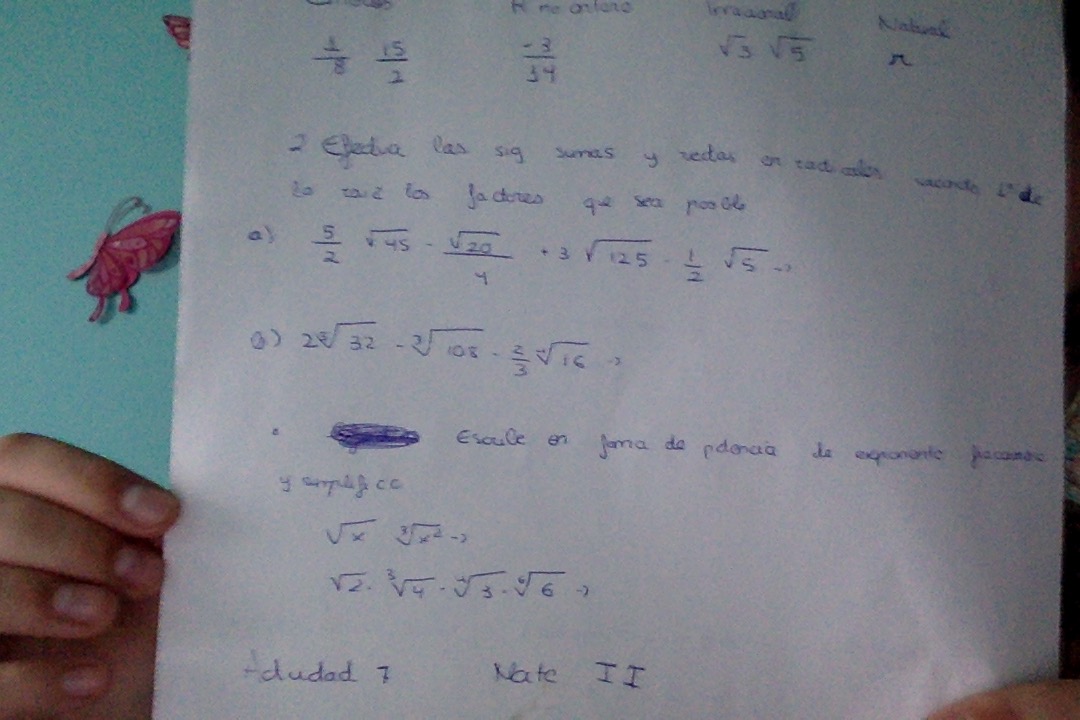 Irracional Natural
1/8 15/2 -3/14 √3 √5 π
2 Efectua las sig sumas y restas en radicales sacando 1º de
la raiz los factores que sea posible
a) 5/2 √45 - √20/4 + 3 √125 - 1/2 √5 ->
b) 2 ∛32 - ∛108 - 2/3 √16 ->
Escribe en forma de potencia de exponente fraccionario
y simplifica
√x ∛x² ->
√2 · ∛4 · ∜3 · ⁶√6 ->
7 Mate II